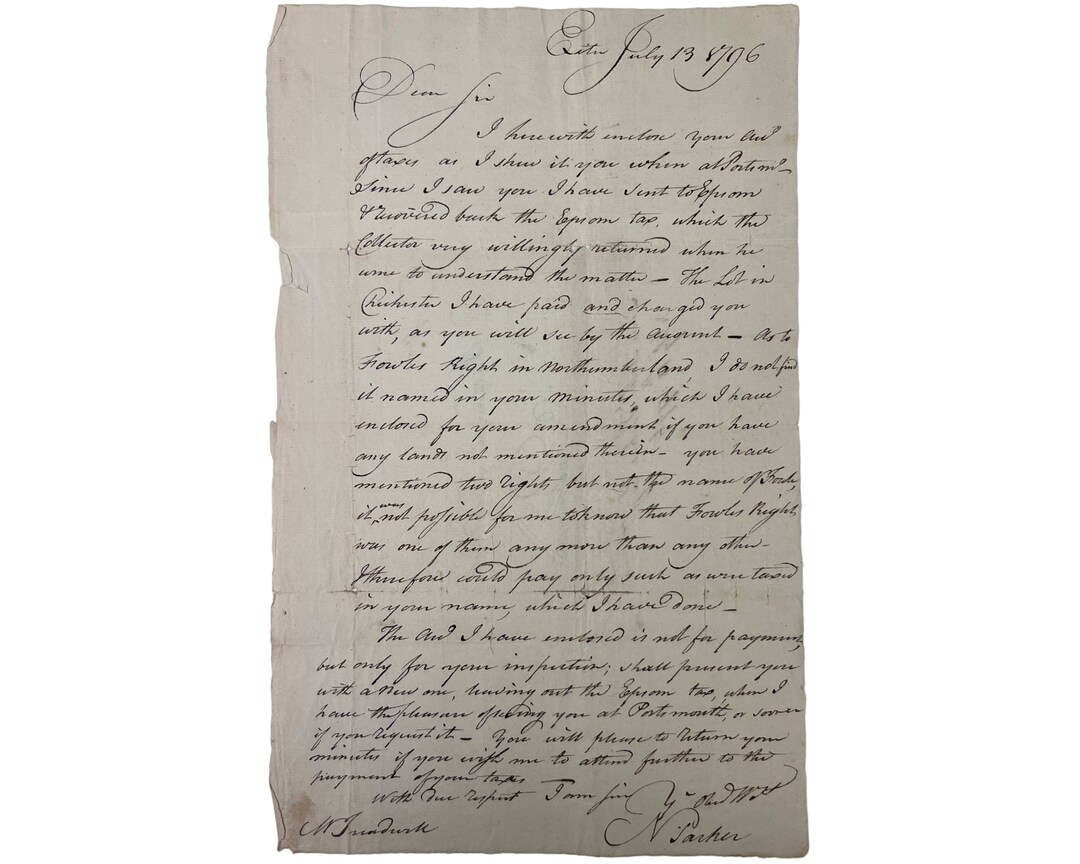 Exeter July 13 1796
Dear Sir
I herewith enclose your Acct
of taxes as I shew it you when at Portsmo—
Since I saw you I have sent to Epsom
& recovered back the Epsom tax, which the
Collector very willingly returned when he
came to understand the matter — The Lot in
Chichester I have paid and charged you
with, as you will see by the account — As to
Fowles Right in Northumberland, I do not find
it named in your minutes, which I have
enclosed for your amendment if you have
any lands not mentioned therein — you have
mentioned two rights but not the name of Fowle,
it was not possible for me to know that Fowles Right
was one of them any more than any other —
I therefore could pay only such as were taxed
in your name, which I have done —
The Acct I have enclosed is not for payment,
but only for your inspection; shall present you
with a new one, leaving out the Epsom tax, when I
have the pleasure of seeing you at Portsmouth, or sooner
if you request it — You will please to return your
minutes if you wish me to attend further to the
payment of your taxes
With due respect I am Sir Yr Obed
N Parker
Mr Treadwell